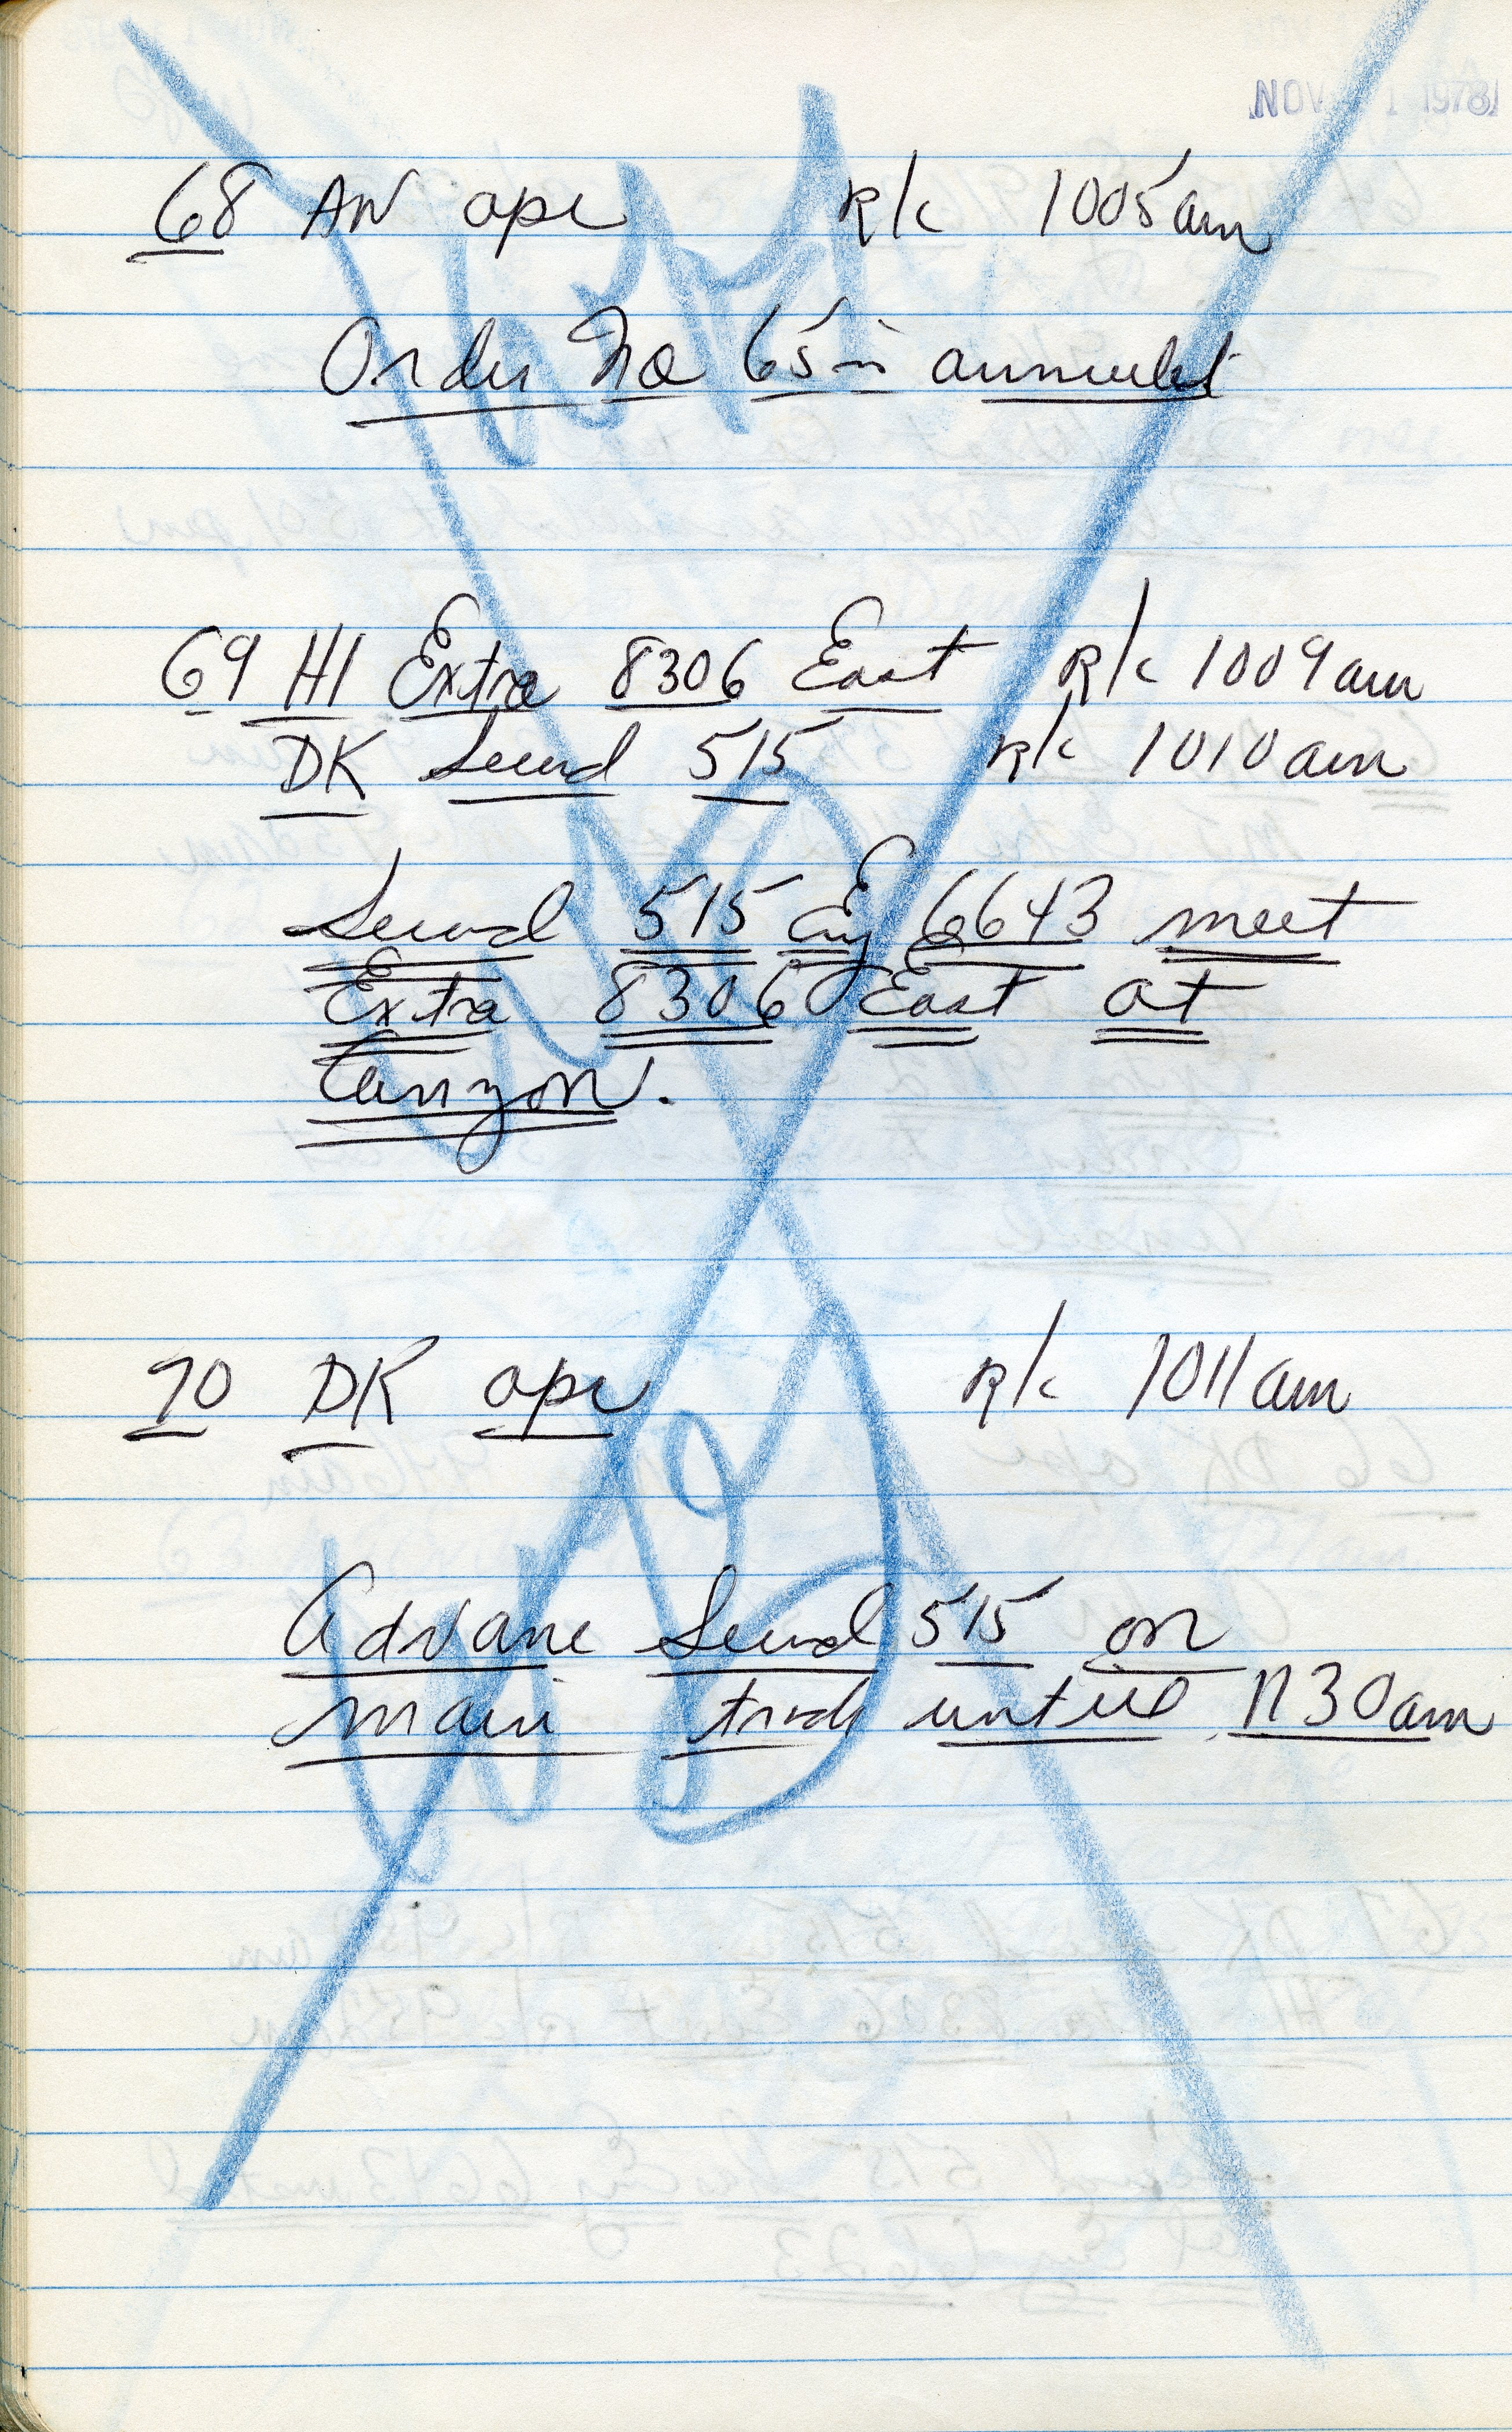 NOV 1 1978
68 AN opr R/c 1005am
Order No 65 is annulled
69 HI Extra 8306 East R/c 1009am
DK Second 515 R/c 1010am
Second 515 Eng 6643 meet
Extra 8306 East at
Canyon.
70 DK opr R/c 1011am
Advance Second 515 on
main track until 1130am